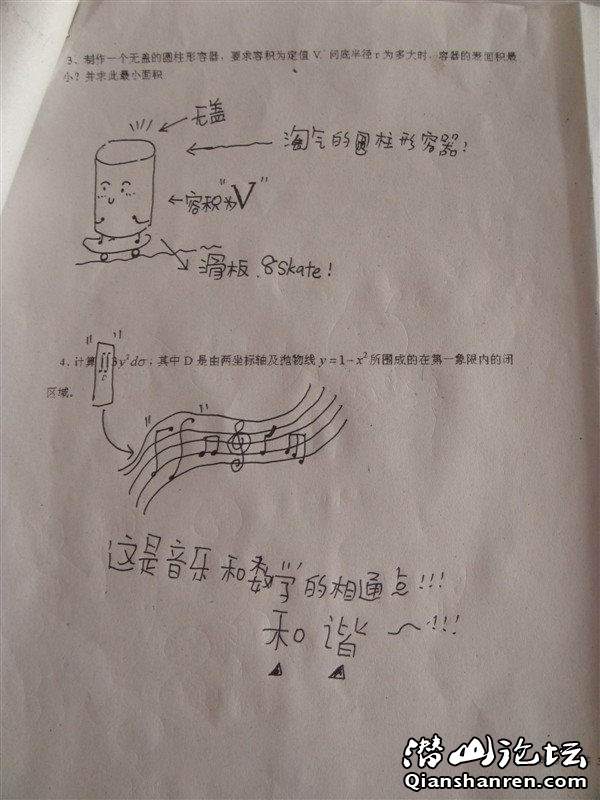 3、制作一个无盖的圆柱形容器，要求容积为定值 V，问底半径 r 为多大时，容器的表面积最
小？并求此最小面积
无盖
淘气的圆柱形容器！
容积"为V"
滑板．8skate！
4、计算∬3y²dσ，其中 D 是由两坐标轴及抛物线 y=1-x²所围成的在第一象限内的闭
D
区域。
这是音乐和数学的相通点!!!
和谐~!!!
潜山论坛
Qianshanren.com